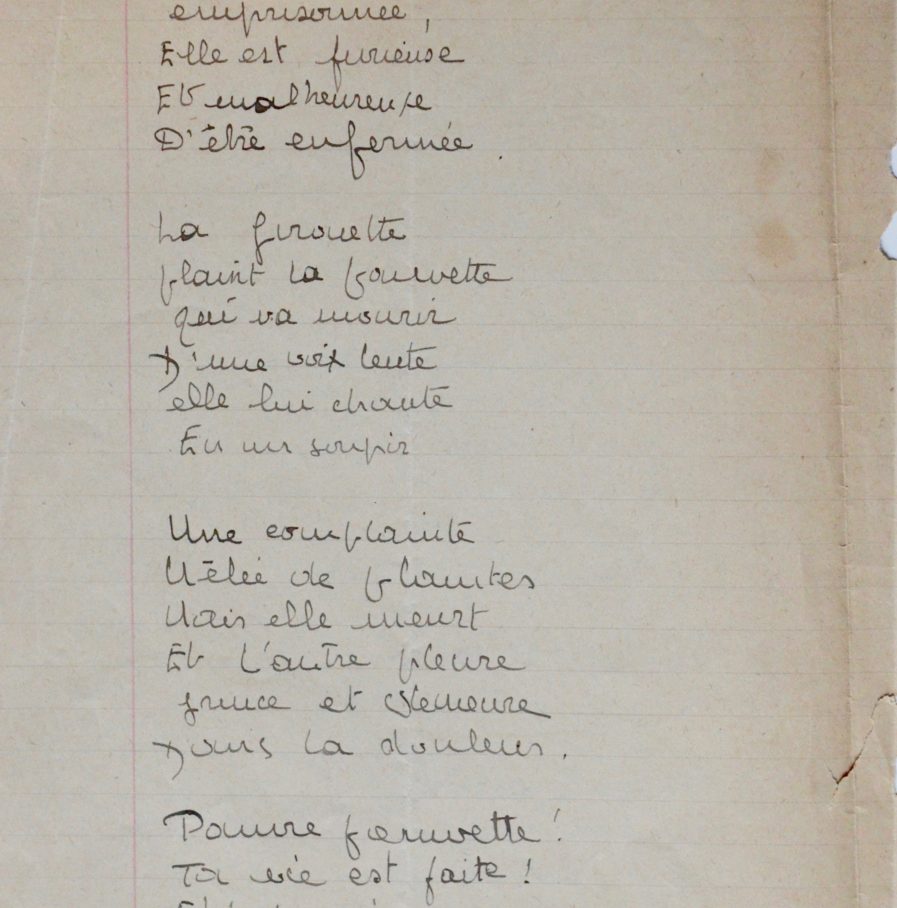 emprisonnée,
Elle est furieuse
Et malheureuse
D'être enfermée.
La girouette
plaint la fauvette
qui va mourir
D'une voix lente
elle lui chante
En un soupir
Une complainte
Mêlée de plaintes
Mais elle meurt
Et l'autre pleure
grince et demeure
Dans la douleur.
Pauvre fauvette!
Ta vie est faite!